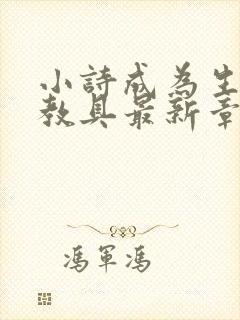 小詩成為生
教具最新章
馮軍馮